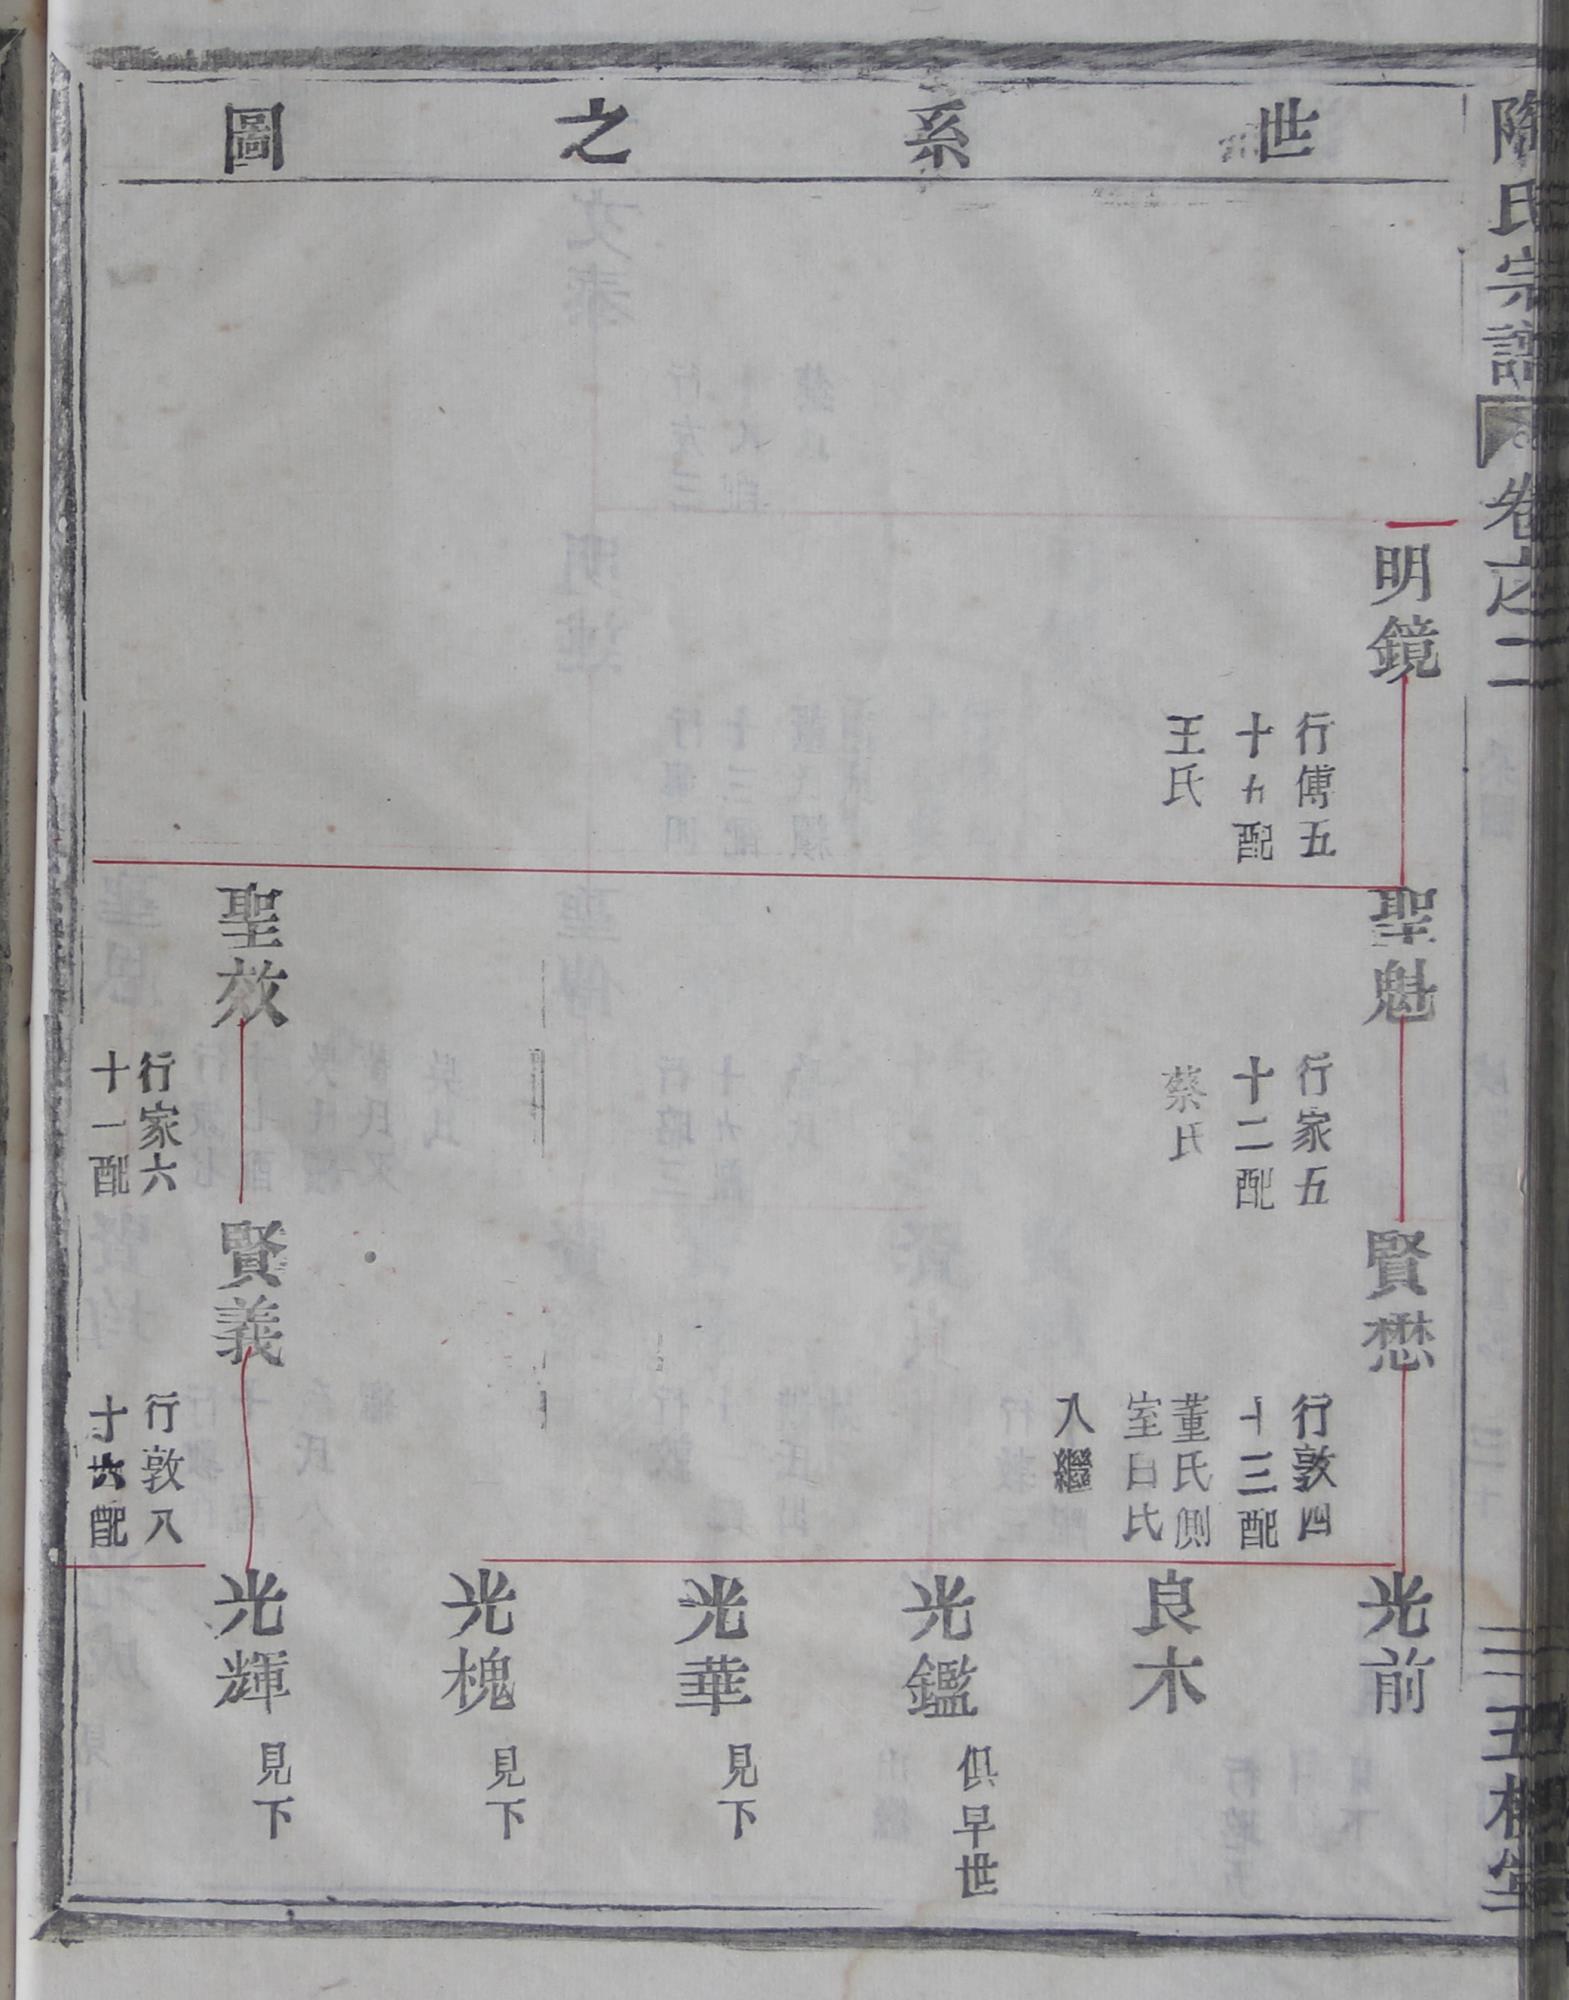 陶氏宗譜
卷之二
五柳堂
世系之圖
明鏡
行傅五
十九配
王氏
聖魁
行家五
十二配
蔡氏
聖效
行家六
十一配
賢懋
行敦四
十三配
董氏側
室白氏
入繼
賢義
行敦八
十六配
光前
良木
光鑑
俱早世
光華
見下
光槐
見下
光輝
見下